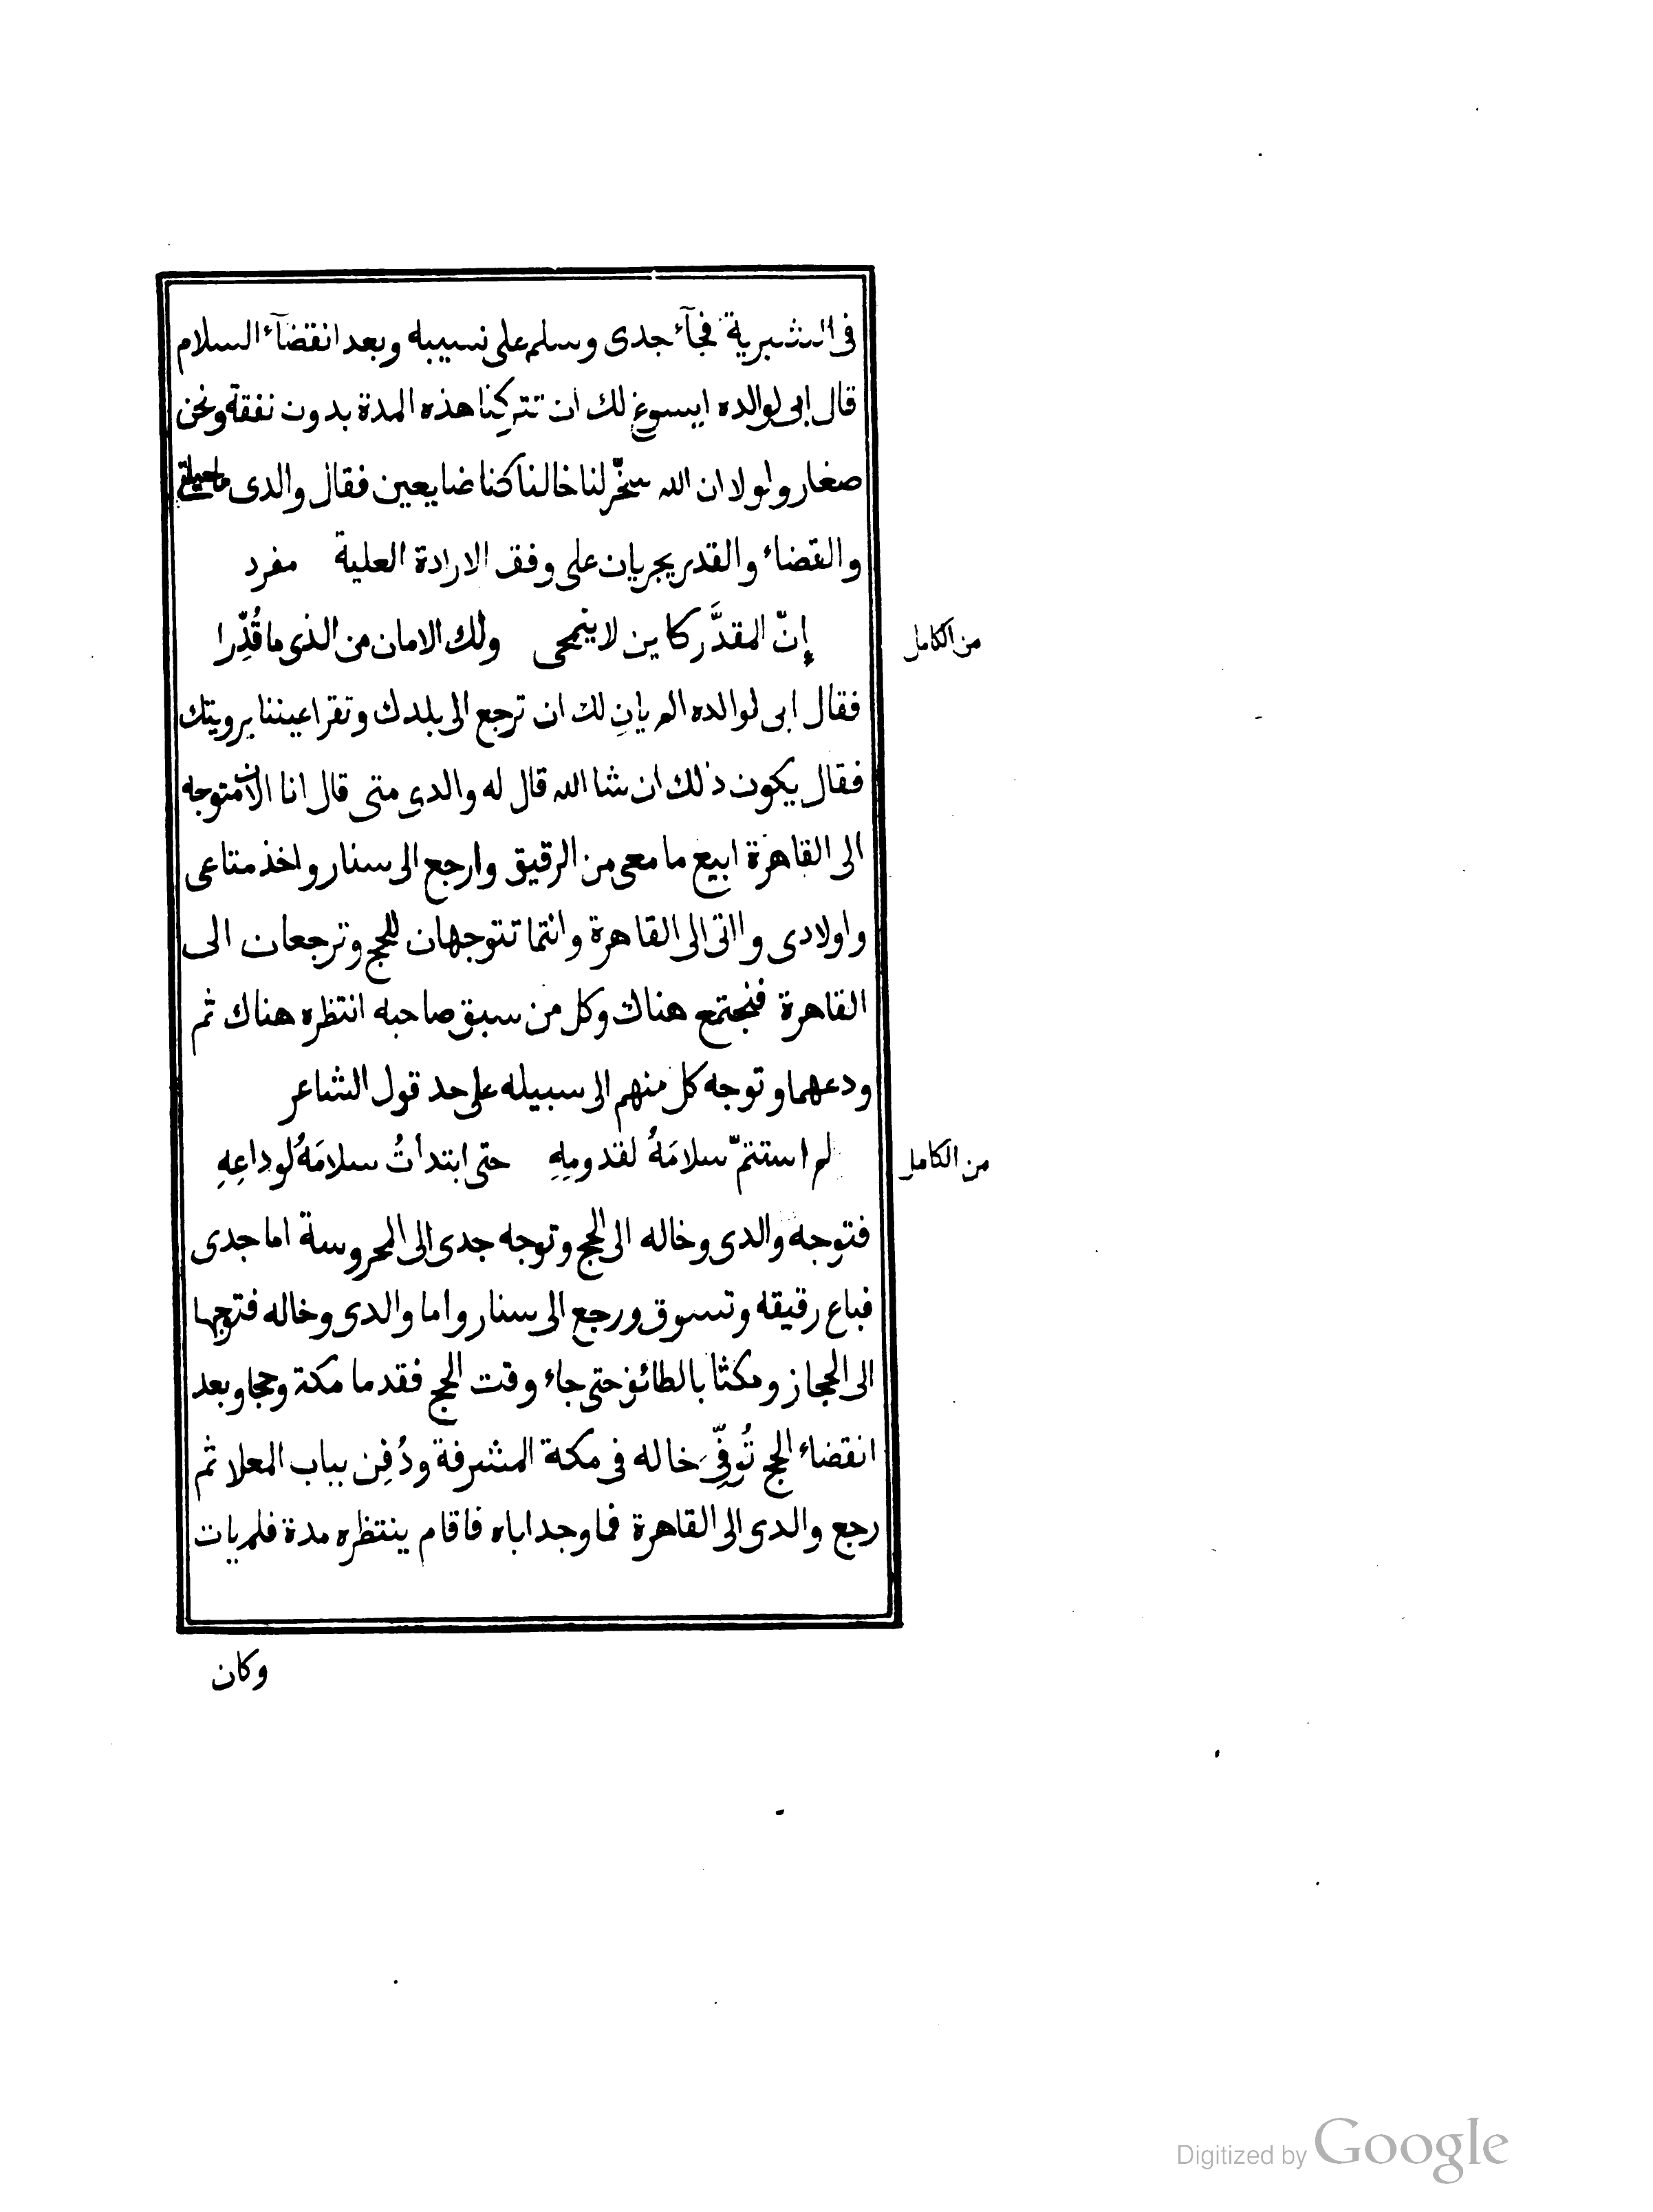 فى الشبرية فجآء جدى وسلم على نسيبه وبعد انقضآء السلام
قال ابى لوالده ايسوغ لك ان تتركنا هذه المدة بدون نفقة ونحن
صغار ولولا ان الله سخّر لنا خالنا كنا ضايعين فقال والدى ما حيلتى
والقضاء والقدر يجريان على وفق الارادة العلية مفرد
إنّ المقدَّر كاين لا ينمحى ولك الامان من الذى ما قُدِّرا
من الكامل
فقال ابى لوالده الم يانِ لك ان ترجع الى بلدك وتقر اعيننا برويتك
فقال يكون ذلك ان شا الله قال له والدى متى قال انا الان متوجه
الى القاهرة ابيع ما معى من الرقيق وارجع الى سنار واخذ متاعى
واولادى وااتى الى القاهرة وانتما تتوجهان للحج وترجعان الى
القاهرة فنجتمع هناك وكل من سبق صاحبه انتظره هناك ثم
ودعهما وتوجه كل منهم الى سبيله على حد قول الشاعر
لم استتمّ سلامَهُ لقدومِهِ حتى ابتدأتُ سلامَهُ لوداعِهِ
من الكامل
فتوجه والدى وخاله الى الحج وتوجه جدى الى المحروسة اما جدى
فباع رقيقه وتسوق ورجع الى سنار واما والدى وخاله فتوجها
الى الحجاز ومكثا بالطائف حتى جاء وقت الحج فقدما مكة وحجا وبعد
انقضاء الحج تُوفِّىَ خاله فى مكة المشرفة ودُفِن بباب المعلا ثم
رجع والدى الى القاهرة فما وجد اباه فاقام ينتظره مدة فلم يات
وكان
Digitized by Google